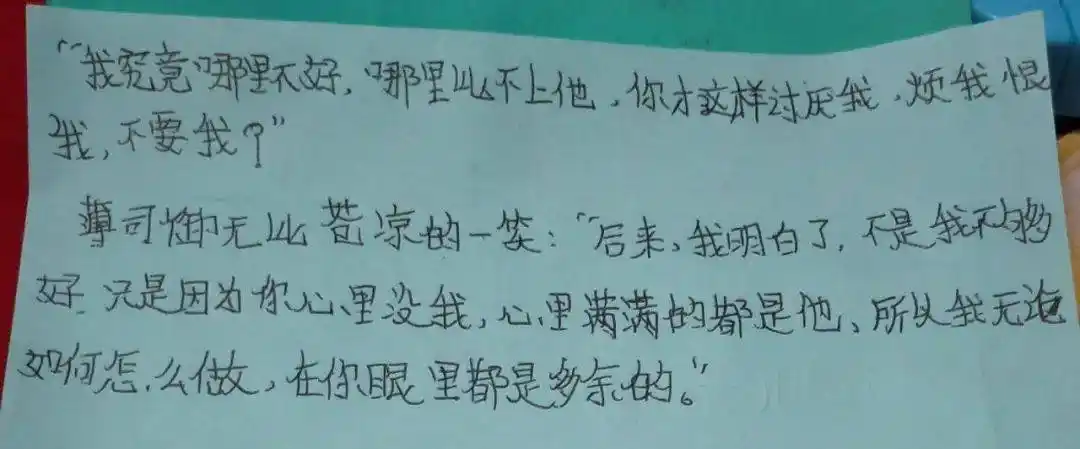 “我究竟哪里不好,哪里比不上他,你才这样讨厌我,烦我恨
我,不要我?”
薄司御无比苍凉的一笑:“后来,我明白了,不是我不够
好,只是因为你心里没我,心里满满的都是他、所以我无论
如何怎么做,在你眼里都是多余的。”